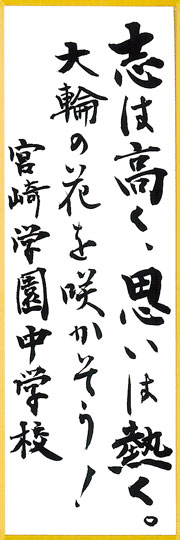 志は高く、思いは熱く。
大輪の花を咲かそう！
宮崎学園中学校